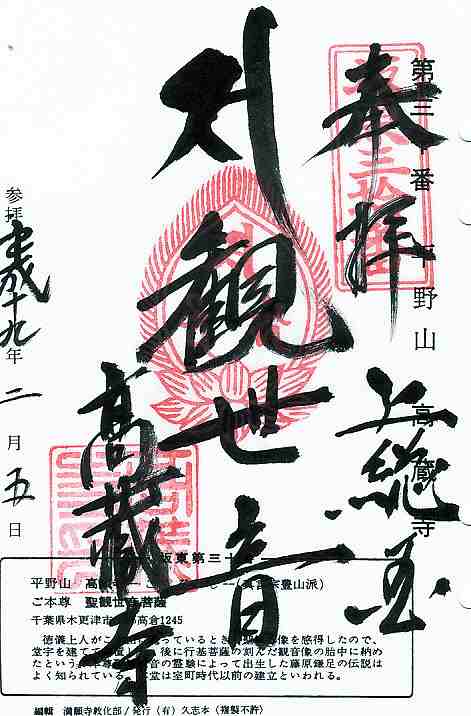 奉拝
上総国
聖観世音
高蔵寺
第三十番 平野山 高蔵寺
参拝 平成十九年 二月五日
坂東三十番
坂東第三十
平野山 高蔵寺
(真言宗豊山派)
ご本尊 聖観世音菩薩
千葉県木更津市 高倉1245
徳儀上人がこ っているとき 像を感得したので、
堂宇を建てて 置し、後に行基菩薩の刻んだ観音像の胎中に納め
たという。本尊 音の霊験によって出生した藤原鎌足の伝説は
よく知られている。 堂は室町時代以前の建立といわれる。
編輯 満願寺教化部/発行(有)久志本(複製不許)